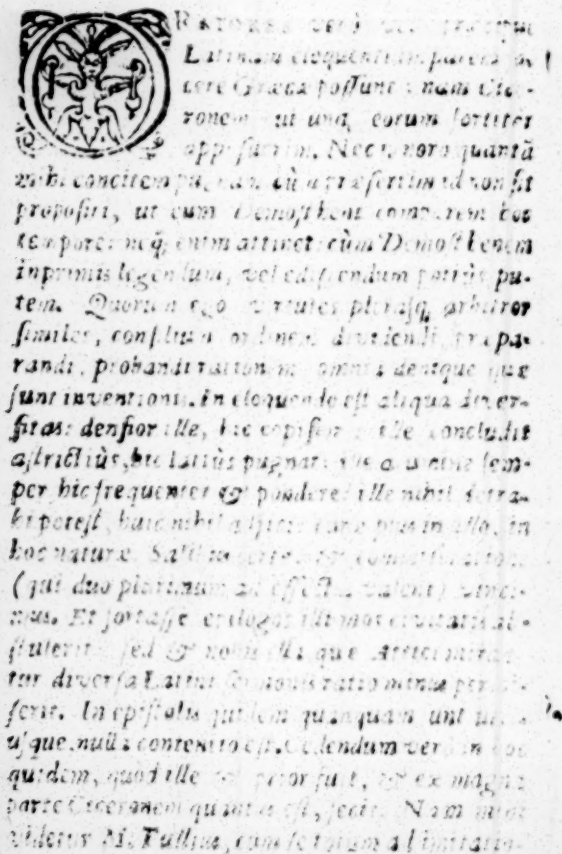 ORATORES verò vel præcipuè
Latinam eloquentiam parem fa-
cere Græcæ possunt: nam Cice-
ronem cuicunque eorum fortiter
opposuerim. Nec ignoro quantã
mihi concitem pugnam, cùm præsertim id non sit
propositi, ut eum Demostheni comparem hoc
tempore: neq; enim attinet: cùm Demosthenem
inprimis legendum, vel ediscendum potiùs pu-
tem. Quorum ego virtutes plerasq; arbitror
similes, consilium, ordinem dividendi, præpa-
randi, probandi rationem, omnia denique quæ
sunt inventionis. In eloquendo est aliqua diver-
sitas: densior ille, hic copiosior: ille concludit
astrictiùs, hic latiùs pugnat: ille acumine sem-
per, hic frequenter & pondere: illi nihil detra-
hi potest, huic nihil adjici: curæ plus in illo, in
hoc naturæ. Salibus certè & commiseratione
(qui duo plurimum affectus valent) vinci-
mus. Et fortasse epilogos illi mos civitatis ab-
stulerit: sed & nobis illa quæ Attici miran-
tur diversa Latini sermonis ratio minus permi-
serit. In epistolis quidem quanquam sunt utri-
usque, nulla contentio est. Cedendum verò in hoc
quidem, quod ille & prior fuit, & ex magna
parte Ciceronem quantus est, fecit. Nam mihi
videtur M. Tullius, cum se totum ad imitatio-